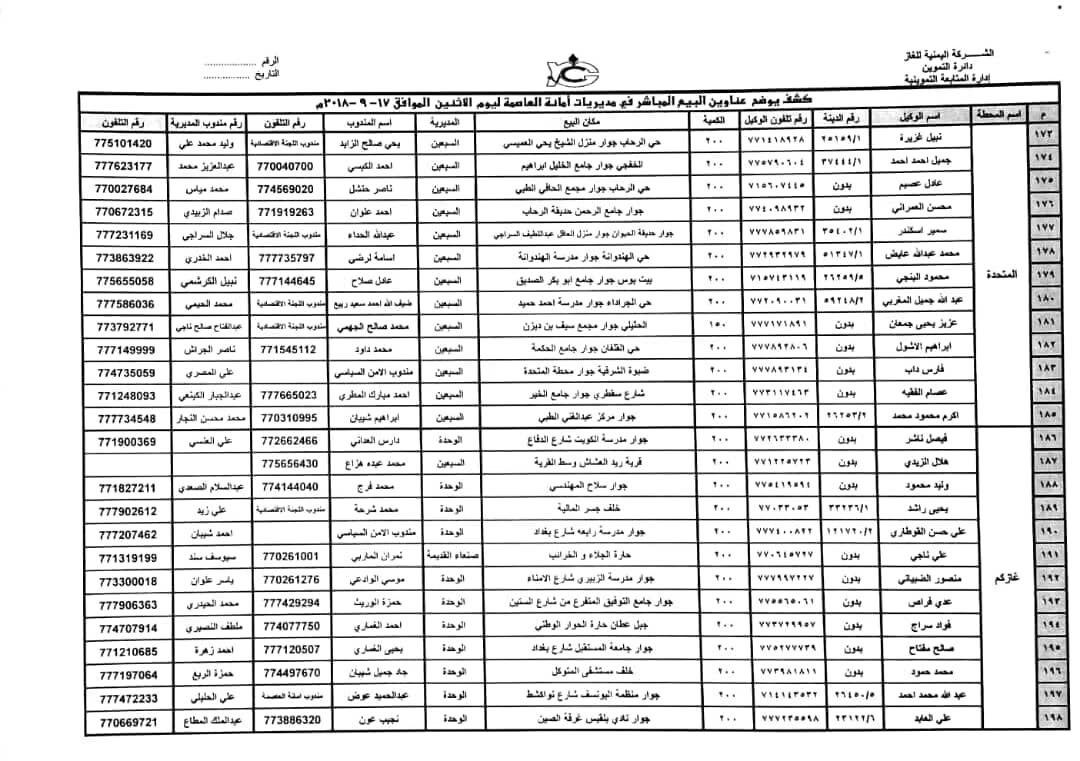 الشركة اليمنية للغاز
دائرة التموين
إدارة المتابعة التموينية
الرقم ...................
التاريخ ................
YGC
كشف يوضح عناوين البيع المباشر في مديريات أمانة العاصمة ليوم الاثنين الموافق ١٧- ٩- ٢٠١٨م
م اسم المحطة اسم الوكيل رقم الدينة رقم تلفون الوكيل الكمية مكان البيع المديرية اسم المندوب رقم التلفون رقم مندوب المديرية رقم التلفون
١٧٣ نبيل غزيرة ٢٥١٥٩/١ ٧٧١٤١٨٩٢٨ ٢٠٠ حي الرحاب جوار منزل الشيخ يحي العميسي السبعين يحي صالح الزايد مندوب اللجنة الاقتصادية وليد محمد علي 775101420
١٧٤ جميل احمد احمد ٣٧٤٤٤/١ ٧٧٥٧٩٠٦٠٤ ٢٠٠ الخفجي جوار جامع الخليل ابراهيم السبعين احمد الكبسي 770040700 عبدالعزيز محمد 777623177
١٧٥ عادل عصيم بدون ٧١٥٦٠٧٤٤٥ ٢٠٠ حي الرحاب جوار مجمع الحافي الطبي السبعين ناصر حنشل 774569020 محمد مياس 770027684
١٧٦ محسن العمراني بدون ٧٧٤٠٩٨٩٣٢ ٢٠٠ جوار جامع الرحمن حديقة الرحاب السبعين احمد علوان 771919263 صدام الزبيدي 770672315
١٧٧ سمير اسكندر ٣٥٤٠٢/١ ٧٧٧٨٥٩٨٣١ ٢٠٠ جوار حديقة الحيوان جوار منزل العاقل عبداللطيف السراجي السبعين عبدالله الحداء مندوب اللجنة الاقتصادية جلال السراجي 777231169
١٧٨ محمد عبدالله عايض ٥١٣٤٧/١ ٧٧٢٩٣٩٩٧٩ ٢٠٠ حي الهندوانة جوار مدرسة الهندوانة السبعين اسامة لرضي 777735797 احمد الخدري 773863922
١٧٩ المتحدة محمود البنجي ٢٦٢٥٩/٥ ٧١٥٧٤٣١١٩ ٢٠٠ بيت بوس جوار جامع ابو بكر الصديق السبعين عادل صلاح 777144645 نبيل الكرشمي 775655058
١٨٠ عبد الله جميل المغربي ٥٩٢٤٨/٢ ٧٧٢٠٩٠٠٣١ ٢٠٠ حي الجراداء جوار مدرسة احمد حميد السبعين ضيف الله احمد سعيد ربيع مندوب اللجنة الاقتصادية محمد الحيمي 777586036
١٨١ عزيز يحيى جمعان بدون ٧٧٧١٧١٨٩١ ١٥٠ الحليلي جوار مجمع سيف بن ذيزن السبعين محمد صالح الجهمي مندوب اللجنة الاقتصادية عبدالفتاح صالح ناجي 773792771
١٨٢ ابراهيم الاشول بدون ٧٧٧٨٩٢٨٠٦ ٢٠٠ حي القلفان جوار جامع الحكمة السبعين محمد داود 771545112 ناصر الجراش 777149999
١٨٣ فارس داب بدون ٧٧٧٨٩٣١٣٤ ٢٠٠ ضبوة الشرقية جوار محطة المتحدة السبعين مندوب الامن السياسي علي المصري 774735059
١٨٤ عصام الفقيه بدون ٧٧٣١١٧٤٦٣ ٢٠٠ شارع سقطري جوار جامع الخير السبعين احمد مبارك المطري 777665023 عبدالجبار الكينعي 771248093
١٨٥ اكرم محمود محمد ٢٦٢٥٣/٢ ٧٧١٥٨٦٢٠٢ ٢٠٠ جوار مركز عبدالغني الطبي السبعين ابراهيم شيبان 770310995 محمد محسن النجار 777734548
١٨٦ فيصل ناشر بدون ٧٧٢٦٣٣٣٨٠ ٢٠٠ جوار مدرسة الكويت شارع الدفاع الوحدة دارس العداني 772662466 علي العنسي 771900369
١٨٧ هلال الزيدي بدون ٧٧١٢٢٥٧٢٣ ٢٠٠ قرية ريد العشاش وسط القرية السبعين محمد عبده هزاع 775656430
١٨٨ وليد محمود بدون ٧٧٥٤١٩٥٩٤ ٢٠٠ جوار سلاح المهندسي الوحدة محمد فرج 774144040 عبدالسلام الصعدي 771827211
١٨٩ يحيى راشد ٣٣٢٣٦/١ ٧٧٠٣٣٠٥٣ ٢٠٠ خلف جسر المالية الوحدة محمد شرحة مندوب اللجنة الاقتصادية علي زيد 777902612
١٩٠ علي حسن القوطاري ١٢١٧٢٠/٢ ٧٧٧٤٠٠٨٢٢ ٢٠٠ جوار مدرسة رابعه شارع بغداد الوحدة مندوب الامن السياسي احمد شيبان 777207462
١٩١ علي ناجي بدون ٧٧٠٦٤٥٧٢٧ ٢٠٠ حارة الجلاء و الخرائب صنعاء القديمة نمران الماربي 770261001 سيوسف سند 771319199
١٩٢ غازكم منصور الضبياني بدون ٧٧٧٩٩٧٢٢٧ ٢٠٠ جوار مدرسة الزبيري شارع الامناء الوحدة موسي الوادعي 770261276 ياسر علوان 773300018
١٩٣ عدي فراص بدون ٧٧٥٥٦٥٠٦١ ٢٠٠ جوار جامع التوفيق المتفرع من شارع الستين الوحدة حمزة الوريث 777429294 محمد الحيدري 777906363
١٩٤ فواد سراج بدون ٧٧٣٧٢٩٩٥٧ ٢٠٠ جبل عطان حارة الحوار الوطني الوحدة احمد الغماري 774077750 ملطف النصيري 774707914
١٩٥ صالح مفتاح بدون ٧٧٥٢٧٧٧٣٩ ٢٠٠ جوار جامعة المستقبل شارع بغداد الوحدة يحيى الغماري 777120507 احمد زهرة 771210685
١٩٦ محمد حمود بدون ٧٧٣٩٨١٨١١ ٢٠٠ خلف مستشفى المتوكل الوحدة جاد جميل شيبان 774497670 حمزة الربع 777197064
١٩٧ عبد الله محمد احمد ٢٦٤٥٠/٥ ٧١٤١٤٣٥٣٢ ٢٠٠ جوار منظمة اليونسف شارع نواكشط الوحدة عبدالحميد عوض مندوب امانة العاصمة علي الحليلي 777472233
١٩٨ علي العابد ٢٣١٢٢/٦ ٧٧٧٢٣٥٥٩٨ ٢٠٠ جوار نادي بلقيس غرفة الصين الوحدة نجيب عون 773886320 عبدالملك المطاع 770669721